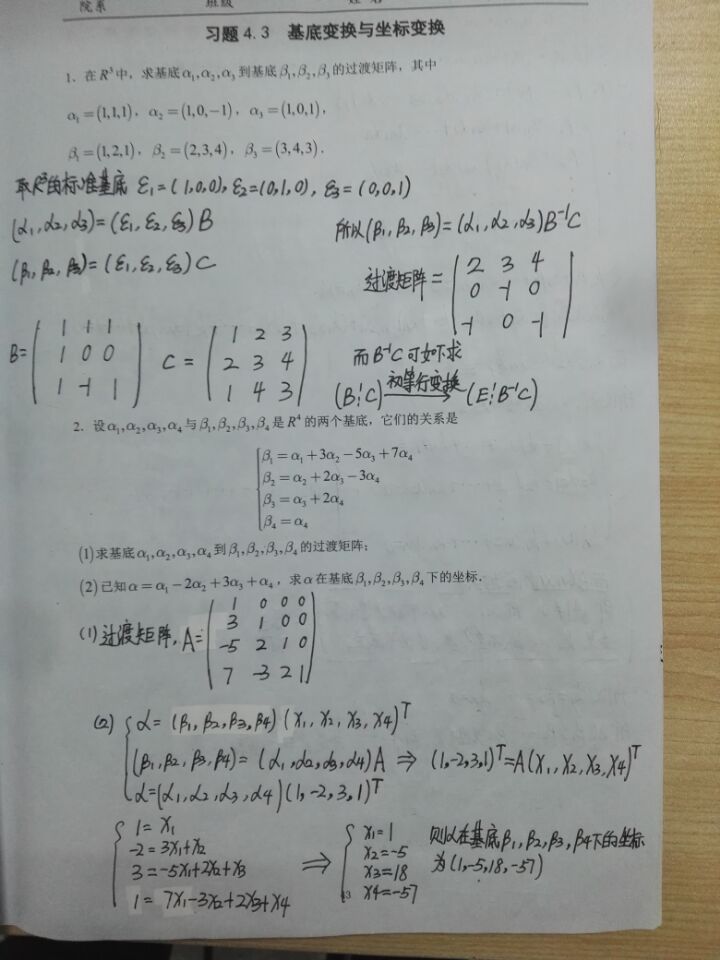 院系 班级 姓名
习题 4.3 基底变换与坐标变换
1. 在 R³ 中，求基底 α₁,α₂,α₃ 到基底 β₁,β₂,β₃ 的过渡矩阵，其中
α₁ = (1,1,1)，α₂ = (1,0,−1)，α₃ = (1,0,1)，
β₁ = (1,2,1)，β₂ = (2,3,4)，β₃ = (3,4,3).
取R³的标准基底 ε₁=(1,0,0), ε₂=(0,1,0), ε₃=(0,0,1)
(α₁,α₂,α₃)=(ε₁,ε₂,ε₃)B
(β₁,β₂,β₃)=(ε₁,ε₂,ε₃)C
B=
1 1 1
1 0 0
1 -1 1
C =
1 2 3
2 3 4
1 4 3
所以(β₁,β₂,β₃)=(α₁,α₂,α₃)B⁻¹C
过渡矩阵 =
2 3 4
0 -1 0
-1 0 -1
而B⁻¹C可如下求
初等行变换
(B¦C) → (E¦B⁻¹C)
2. 设 α₁,α₂,α₃,α₄ 与 β₁,β₂,β₃,β₄ 是 R⁴ 的两个基底，它们的关系是
β₁ = α₁ + 3α₂ − 5α₃ + 7α₄
β₂ = α₂ + 2α₃ − 3α₄
β₃ = α₃ + 2α₄
β₄ = α₄
(1)求基底 α₁,α₂,α₃,α₄ 到 β₁,β₂,β₃,β₄ 的过渡矩阵；
(2)已知 α = α₁ − 2α₂ + 3α₃ + α₄，求 α 在基底 β₁,β₂,β₃,β₄ 下的坐标.
(1) 过渡矩阵, A=
1 0 0 0
3 1 0 0
-5 2 1 0
7 -3 2 1
(2) α= (β₁,β₂,β₃,β₄)(x₁,x₂,x₃,x₄)ᵀ
(β₁,β₂,β₃,β₄)= (α₁,α₂,α₃,α₄)A ⇒ (1,-2,3,1)ᵀ=A(x₁,x₂,x₃,x₄)ᵀ
α=(α₁,α₂,α₃,α₄)(1,-2,3,1)ᵀ
1= x₁
-2= 3x₁+x₂
3= -5x₁+2x₂+x₃
1= 7x₁-3x₂+2x₃+x₄
⇒
x₁=1
x₂=-5
x₃=18
x₄=-57
则α在基底β₁,β₂,β₃,β₄下的坐标
为(1,-5,18,-57)